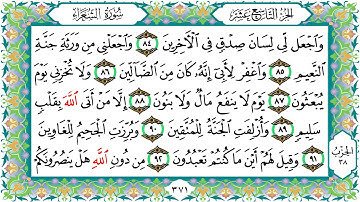 الجزء التاسع عشر
سورة الشعراء
وَاجْعَل لِّي لِسَانَ صِدْقٍ فِي الْآخِرِينَ ٨٤ وَاجْعَلْنِي مِن وَرَثَةِ جَنَّةِ
النَّعِيمِ ٨٥ وَاغْفِرْ لِأَبِي إِنَّهُ كَانَ مِنَ الضَّالِّينَ ٨٦ وَلَا تُخْزِنِي يَوْمَ
يُبْعَثُونَ ٨٧ يَوْمَ لَا يَنفَعُ مَالٌ وَلَا بَنُونَ ٨٨ إِلَّا مَنْ أَتَى اللَّهَ بِقَلْبٍ
سَلِيمٍ ٨٩ وَأُزْلِفَتِ الْجَنَّةُ لِلْمُتَّقِينَ ٩٠ وَبُرِّزَتِ الْجَحِيمُ لِلْغَاوِينَ
٩١ وَقِيلَ لَهُمْ أَيْنَ مَا كُنتُمْ تَعْبُدُونَ ٩٢ مِن دُونِ اللَّهِ هَلْ يَنصُرُونَكُمْ
الحزب ٣٨
٣٧١